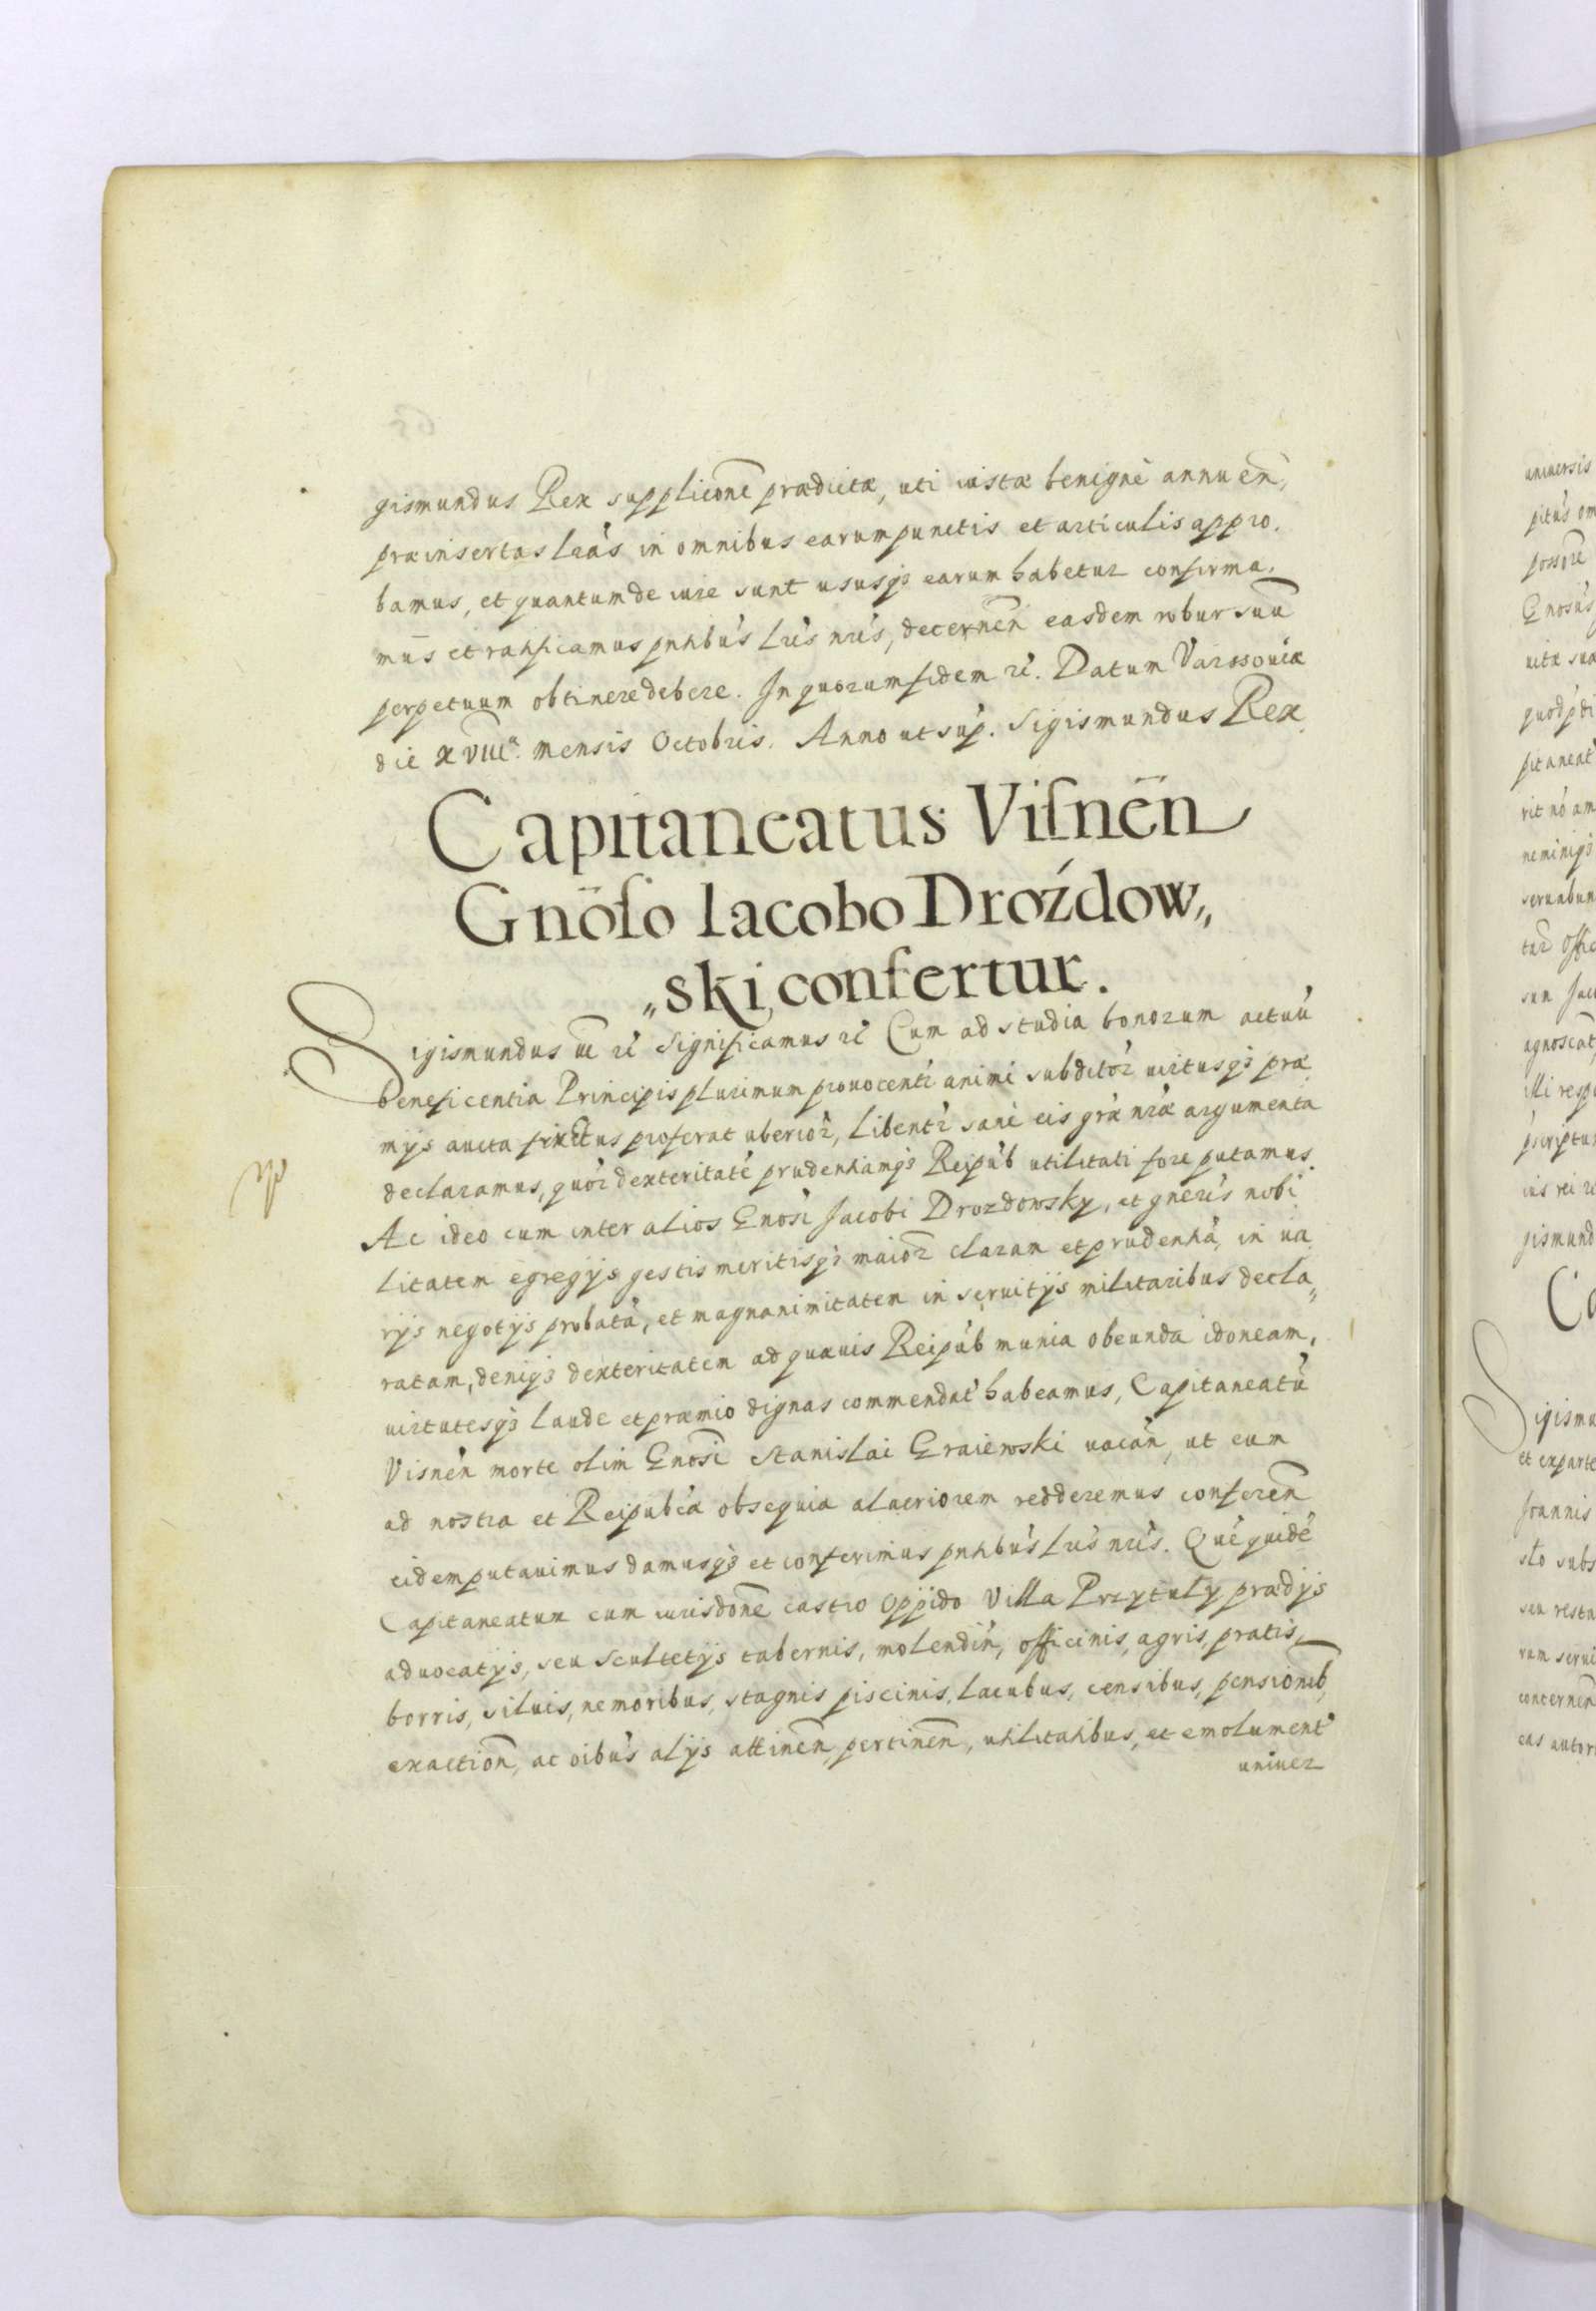 gismundus Rex supplicõne prædictæ, uti iustæ benignè annuen̄,
præinsertas lràs in omnibus earum punctis et articulis appro.
bamus, et quantum de iure sunt ususq₃ earum habetur confirma.
mus et ratificamus pntibùs lrìs nrìs, decernen̄ easdem robur suū
perpetuum obtinere debere. In quorum fidem rc̄. Datum Varssoviæ
die XVIIIᵃ. mensis Octobris. Anno ut sup̀. Sigismundus Rex.
Capitaneatus Viſnen̄
Gnõſo Iacobo Droźdow„
„ski, confertur.
Sigismundus uc̄ rc̄ Significamus rc̄ Cum ad studia bonorum actuū
beneficentia Principis plurimum provocentr̀ animi subditor̀ virtusq₃ præ
mys aucta fructus proferat uberior̀, libentr̀ sanè eis græ nræ argumenta
declaramus, quor̀ dexteritatē prudentiamq₃ Reipub̀ utilitati fore putamus.
Ac ideo cum inter alios Gnosi Jacobi Drozdowsky, et gneris nobi
litatem egregys gestis meritisq₃ maior̀ claram et prudentiā, in va
rys negotys probatā, et magnanimitatem in servitys militaribus decla„
ratam, deniq₃ dexteritatem ad quævis Reipub̀ munia obeunda idoneam,
virtutesq₃ laude et præmio dignas commendat' habeamus, Capitaneatū
Visnen̄ morte olim Gnosi Stanislai Graiewski vacan̄, ut eum
ad nostra et Reipubcæ obsequia alacriorem redderemus conferen̄
eidem putavimus damusq₃ et conferimus pntibùs lrìs nrìs. Quē quidē
Capitaneatum cum iurisdõne castro oppido Villa Przytuly prædys
advocatys, seu scultetys tabernis, molendin̄, officinis, agris, pratis,
borris, silvis, nemoribus, stagnis piscinis, lacubus, censibus, pensionib,
exaction̄, ac oibùs alys attinen̄, pertinen̄, utilitatibus, et emolument'
univer